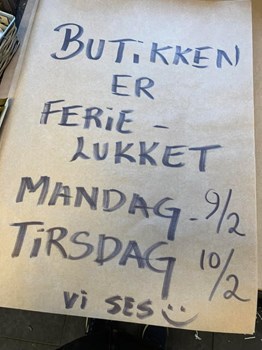 BUTiKKEN
ER
FERiE -
LUKKET
MANDAG - 9/2
TiRSDAG 10/2
Vi SES :)